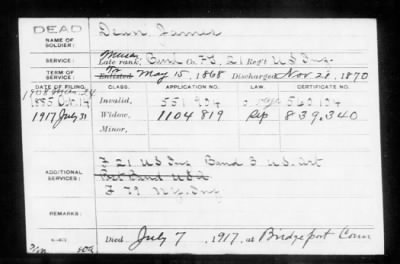 DEAD
NAME OF SOLDIER: Dean, James
SERVICE: Late rank, Musc Band Co. F & S, 21 Reg't U S Inf.
TERM OF SERVICE: Enlisted To May 15, 1868 Discharged Nov. 28, 1870
DATE OF FILING. CLASS. APPLICATION NO. LAW. CERTIFICATE NO.
1885 Oct. 14 Invalid, 551 904 560 104
1917 July 31 Widow, 1104 819 Rep 839,340
Minor,
ADDITIONAL SERVICES: F 21 U S Inf Band 3 U.S. Art
F 79 N.Y. Inf
REMARKS:
Died July 7, 1917, at Bridgeport Conn